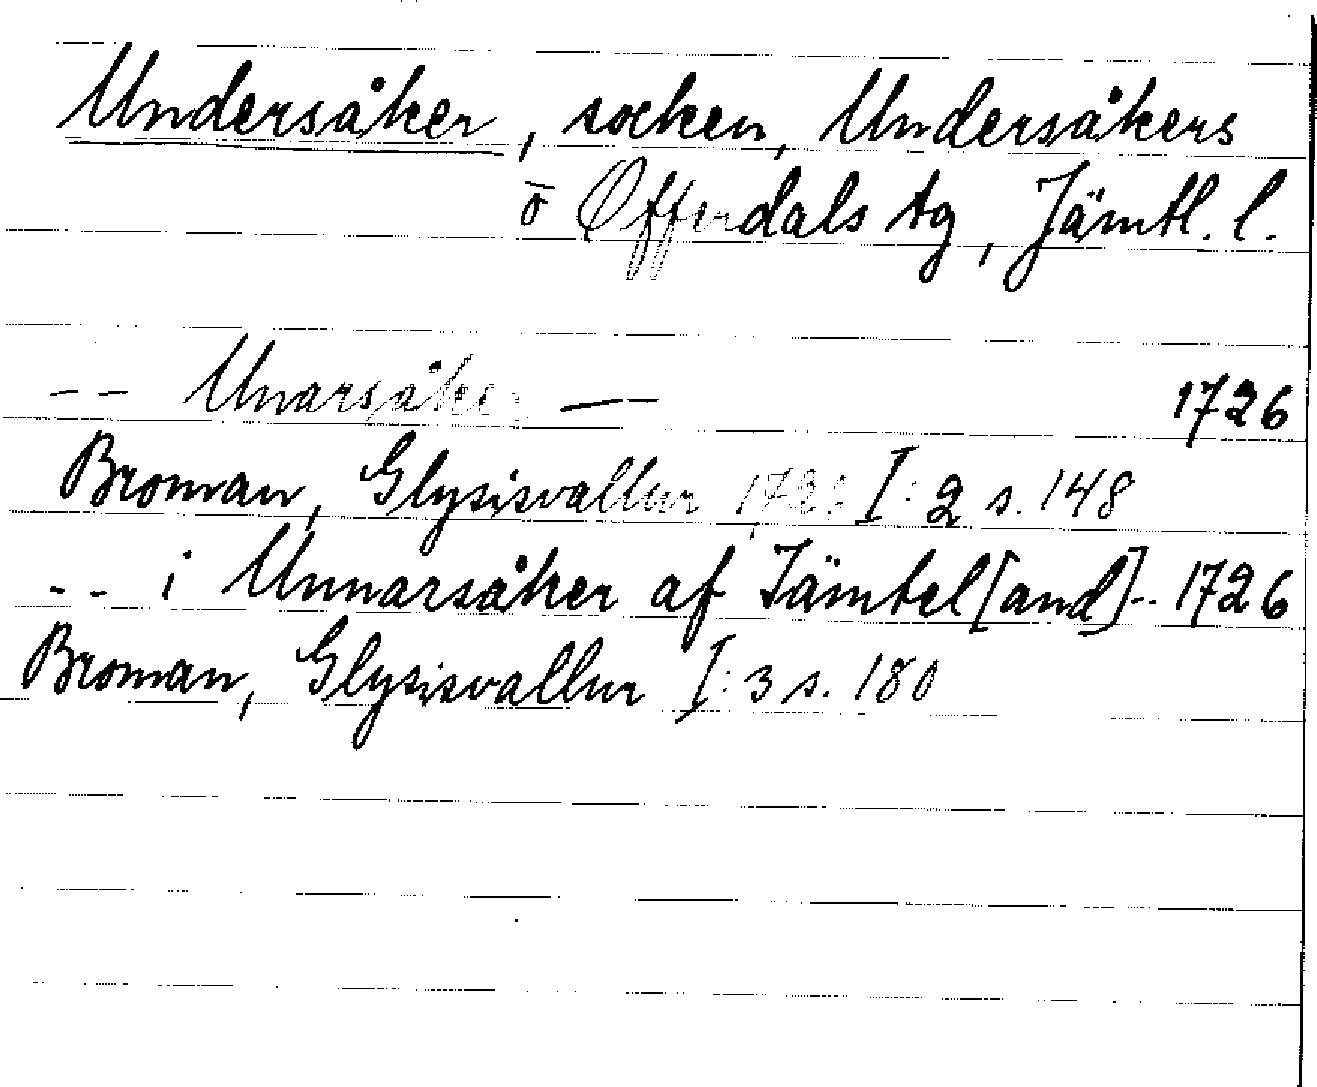 Undersåker, socken, Undersåkers
o̅ Offerdals tg, Jämtl. l.
-- Unarsåker — 1726
Broman, Glysisvallur I:2 s. 148
-- i Unnarsåker af Jämtel[and]-- 1726
Broman, Glysisvallur I:3 s. 180